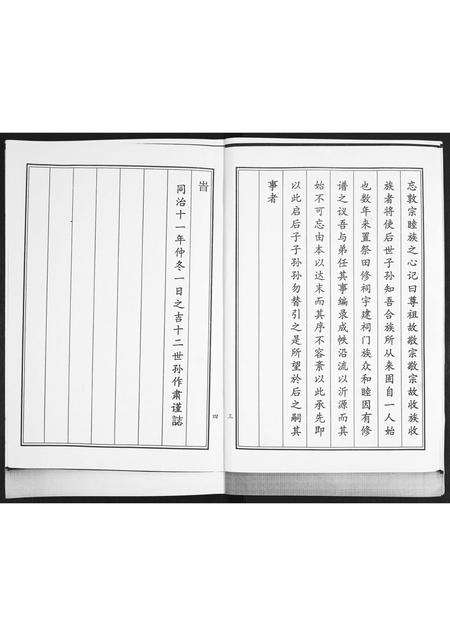 忘敦宗睦族之心记曰尊祖故敬宗敬宗故收族收
族者将使后世子孙知吾合族所从来固自一人始
也数年来置祭田修祠宇建祠门族众和睦因有修
谱之议吾与弟任其事编录成帙沿流以沂源而其
始不可忘由本以达末而其序不容紊以此承先即
以此启后子子孙孙勿替引之是所望於后之嗣其
事者
三
旹
同治十一年仲冬一日之吉十二世孙作肃谨誌
四